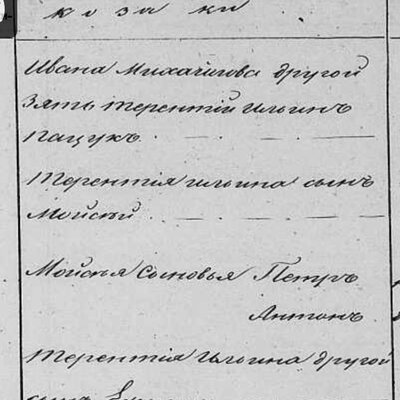 козаки
Ивана Михайлова другой
зять Терентій Ильинъ
Пацукъ.
Терентія Ильина сынъ
Мойсѣй.
Мойсѣя сыновья Петръ
Антонъ
Терентія Ильина другой
сынъ